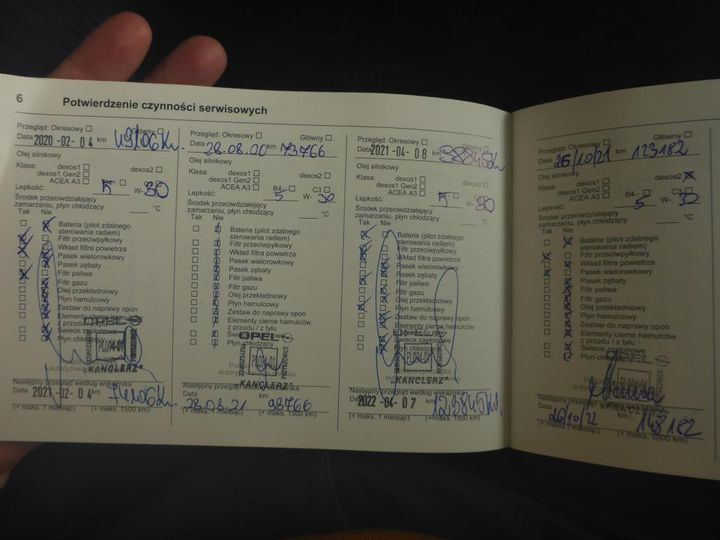 6
Potwierdzenie czynności serwisowych
Przegląd: Okresowy
Data 2020-02-04 km
Olej silnikowy
Klasa: dexos1 dexos2
dexos1 Gen2
ACEA A3 B4 C3
Lepkość: 5 W- 30
Środek przeciwdziałający
zamarzaniu, płyn chłodzący °C
Tak Nie
Bateria (pilot zdalnego
sterowania radiem)
Filtr przeciwpyłkowy
Wkład filtra powietrza
Pasek wielorowkowy
Pasek zębaty
Filtr paliwa
Filtr gazu
Olej przekładniowy
Płyn hamulcowy
Zestaw do naprawy opon
Elementy cierne hamulców
z przodu / z tyłu
Świece zapłonowe
Płyn chłodzący
OPEL
PL094-01
"KANGLERZ"
Następny przegląd według wskazówki
Data 2021-02-04 km
(+ maks. 1 miesiąc) (+ maks. 1500 km)
Przegląd: Okresowy Główny
Data 28.08.20 km 73766
Olej silnikowy
Klasa: dexos1 dexos2
dexos1 Gen2
ACEA A3 B4 C3
Lepkość: 5 W- 30
Środek przeciwdziałający
zamarzaniu, płyn chłodzący °C
Tak Nie
Bateria (pilot zdalnego
sterowania radiem)
Filtr przeciwpyłkowy
Wkład filtra powietrza
Pasek wielorowkowy
Pasek zębaty
Filtr paliwa
Filtr gazu
Olej przekładniowy
Płyn hamulcowy
Zestaw do naprawy opon
Elementy cierne hamulców
z przodu / z tyłu
Świece zapłonowe
Płyn chłodzący
OPEL
PL094-01
"KANGLERZ"
Następny przegląd według wskazówki
Data 28.08.21 km 98766
(+ maks. 1 miesiąc) (+ maks. 1500 km)
Przegląd: Okresowy Główny
Data 2021-04-08 km 98845
Olej silnikowy
Klasa: dexos1 dexos2
dexos1 Gen2
ACEA A3 B4 C3
Lepkość: 5 W- 30
Środek przeciwdziałający
zamarzaniu, płyn chłodzący °C
Tak Nie
Bateria (pilot zdalnego
sterowania radiem)
Filtr przeciwpyłkowy
Wkład filtra powietrza
Pasek wielorowkowy
Pasek zębaty
Filtr paliwa
Filtr gazu
Olej przekładniowy
Płyn hamulcowy
Zestaw do naprawy opon
Elementy cierne hamulców
z przodu / z tyłu
Świece zapłonowe
Płyn chłodzący
OPEL
"KANGLERZ"
Następny przegląd według wskazówki
Data 2022-04-07 km 123845
(+ maks. 1 miesiąc) (+ maks. 1500 km)
Przegląd: Okresowy Główny
Data 26/10/21 km 123182
Olej silnikowy
Klasa: dexos1 dexos2
dexos1 Gen2
ACEA A3 B4 - C3
Lepkość: 5 W- 30
Środek przeciwdziałający
zamarzaniu, płyn chłodzący °C
Tak Nie
Bateria (pilot zdalnego
sterowania radiem)
Filtr przeciwpyłkowy
Wkład filtra powietrza
Pasek wielorowkowy
Pasek zębaty
Filtr paliwa
Filtr gazu
Olej przekładniowy
Płyn hamulcowy
Zestaw do naprawy opon
Elementy cierne hamulców
z przodu / z tyłu
Świece zapłonowe
Następny przegląd według wskazówki
Data 26/10/22 km 148182
(+ maks. 1 miesiąc) (+ maks. 1500 km)